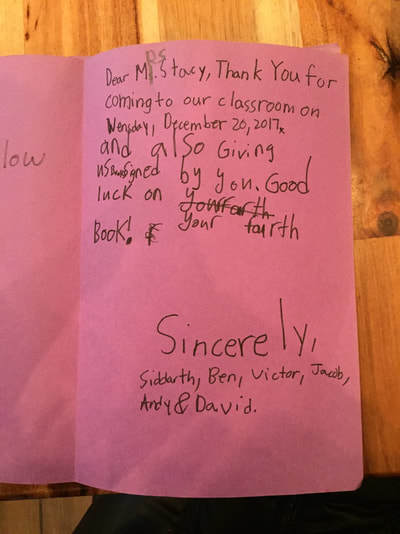 low
Dear Mrs. Stacy, Thank You for
coming to our classroom on
Wensday, December 20, 2017,
and also Giving
us signed by you. Good
luck on
Book! your fourth
Sincerely,
Siddarth, Ben, Victor, Jacob,
Andy & David.